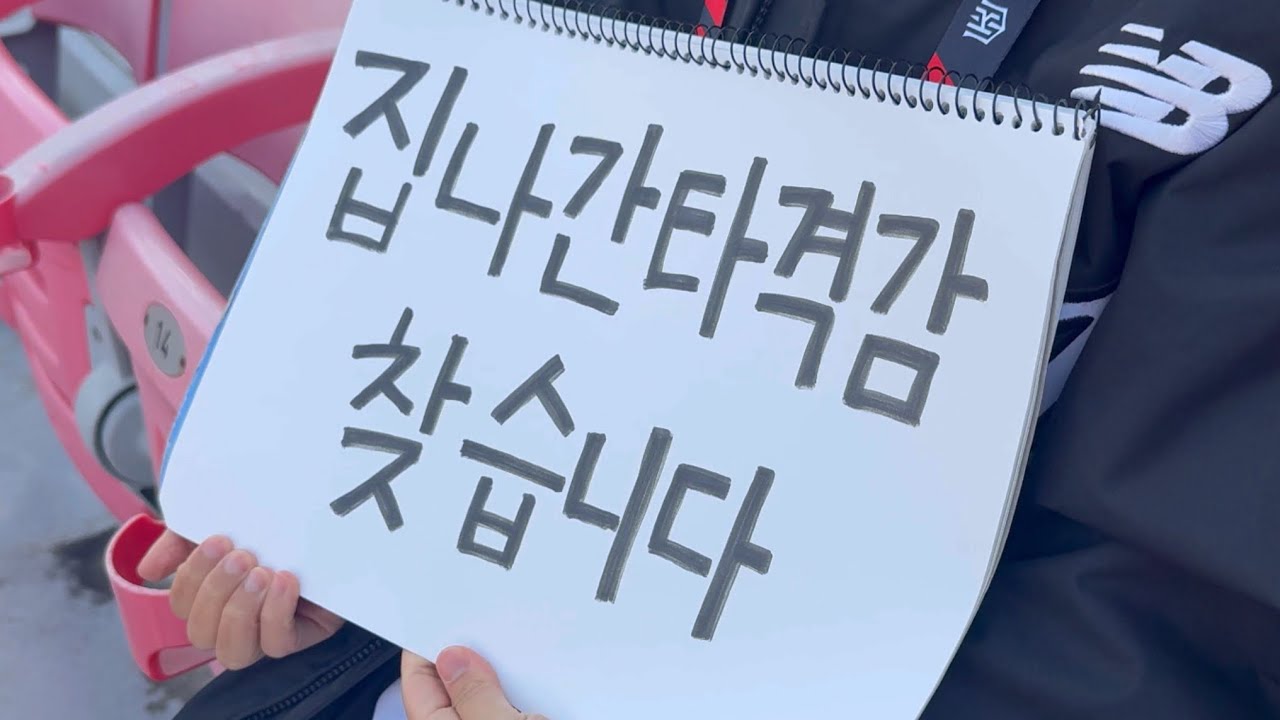 집나간타격감
찾습니다
14